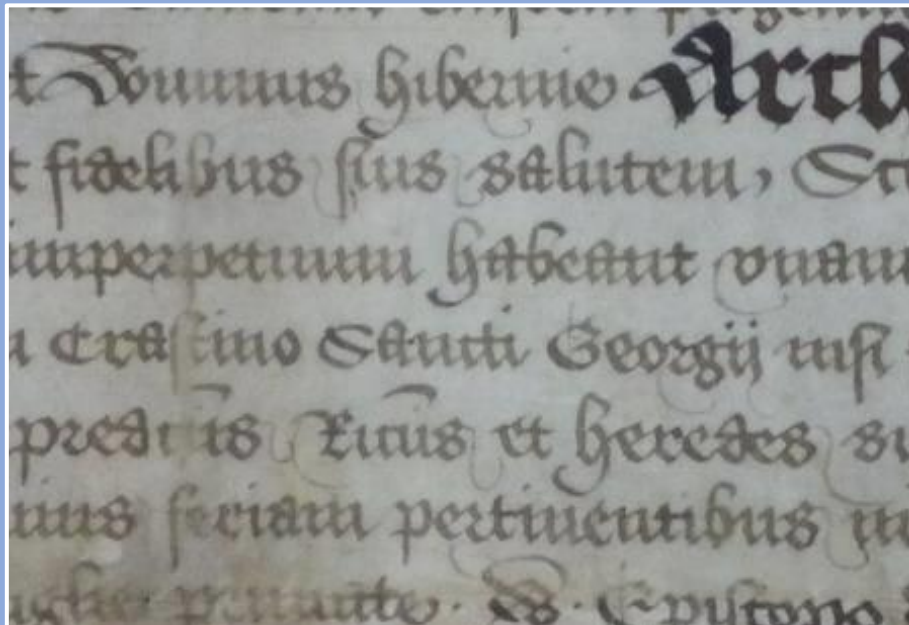 t Dominus hibernie Arch
t fidelibus suis salutem, Sci
imperpetuum habeant vnam
Crastino Sancti Georgij nisi
predictus Ricus et heredes su
feriam pertinentibus